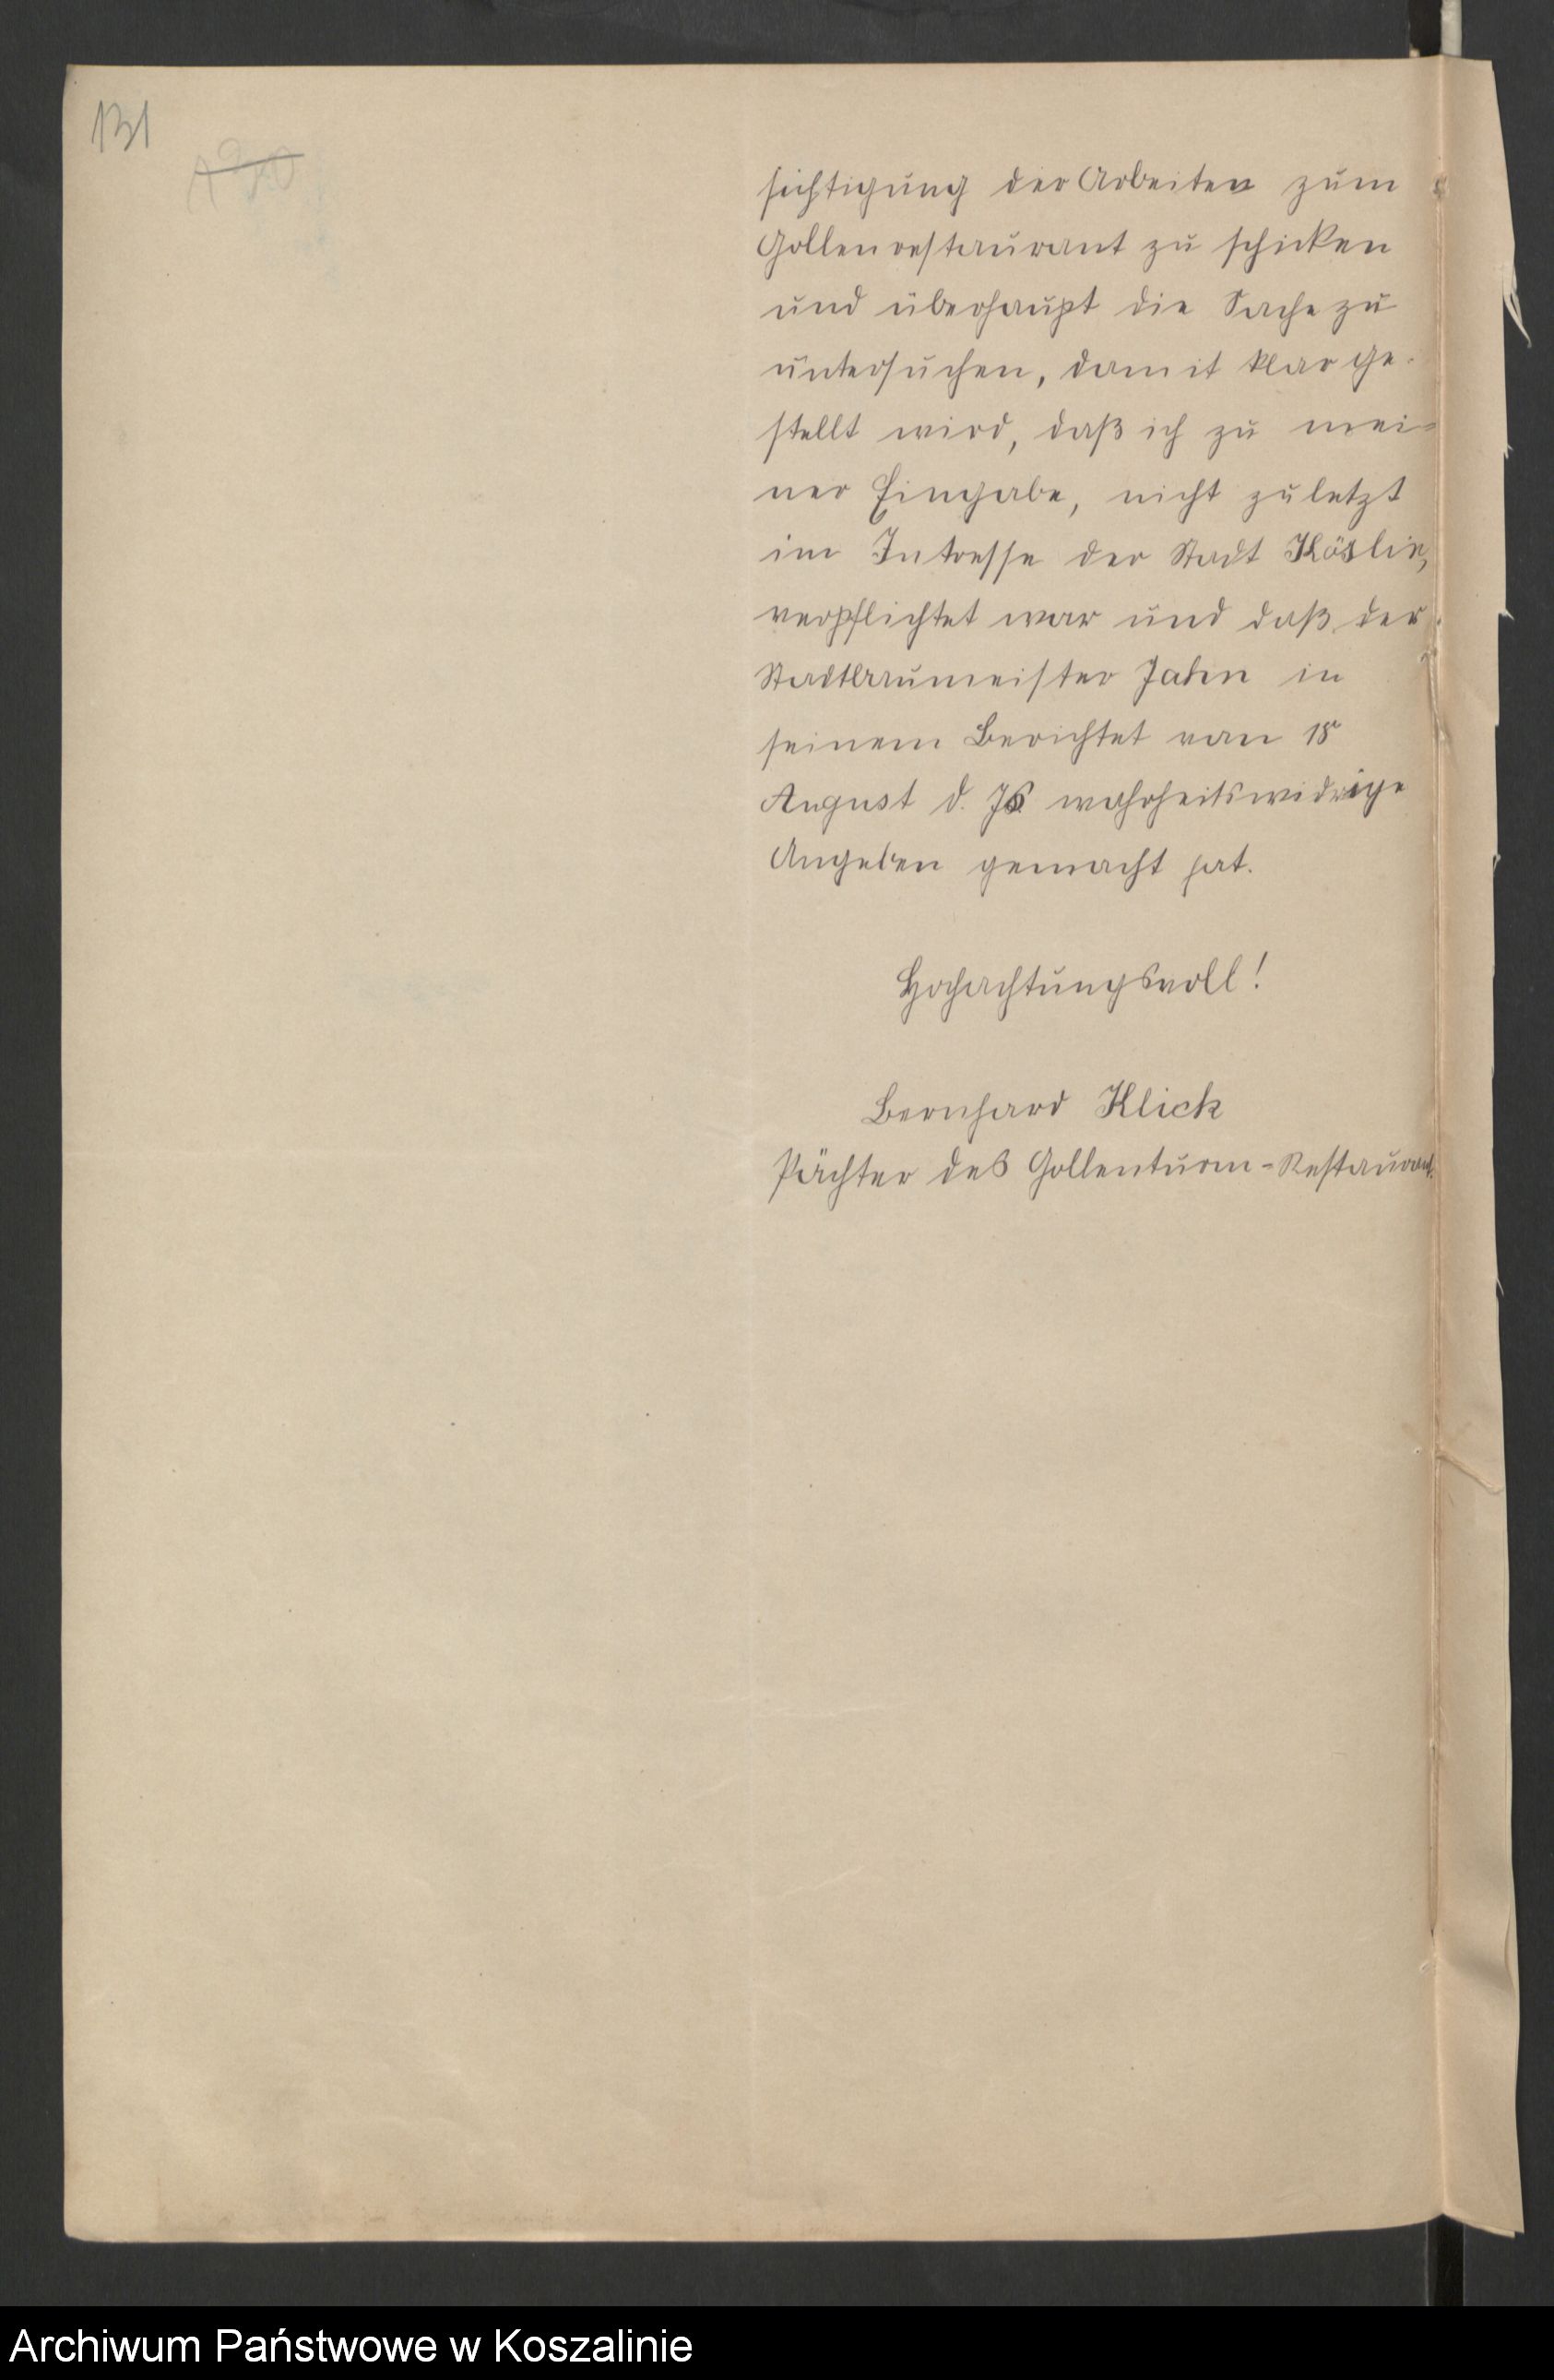 131
sichtigung der Arbeiten zum
Gollenrestaurant zu schicken
und überhaupt die Sache zu
untersuchen, damit klar ge-
stellt wird, daß ich zu mei=
ner Eingabe, nicht zuletzt
im Intresse der Stadt Köslin,
verpflichtet war und daß der
Stadtbaumeister Jahn in
seinem Berichtet vom 18
August d. Js. wahrheitswidrige
Angaben gemacht hat.
Hochachtungsvoll!
Bernhard Klick
Pächter des Gollenturm-Restaurant.
Archiwum Państwowe w Koszalinie